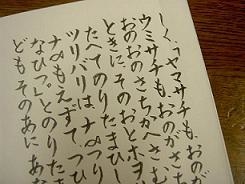 しく、「ヤマサチも、おのが
ウミサチも、おのがさ
おのおのさちか
ときに、そのおとホヲ
たへてのりたまひし
ツリバリは、つり
もえずて、つひ
なひつ」とのりたま
どもそのあに あな